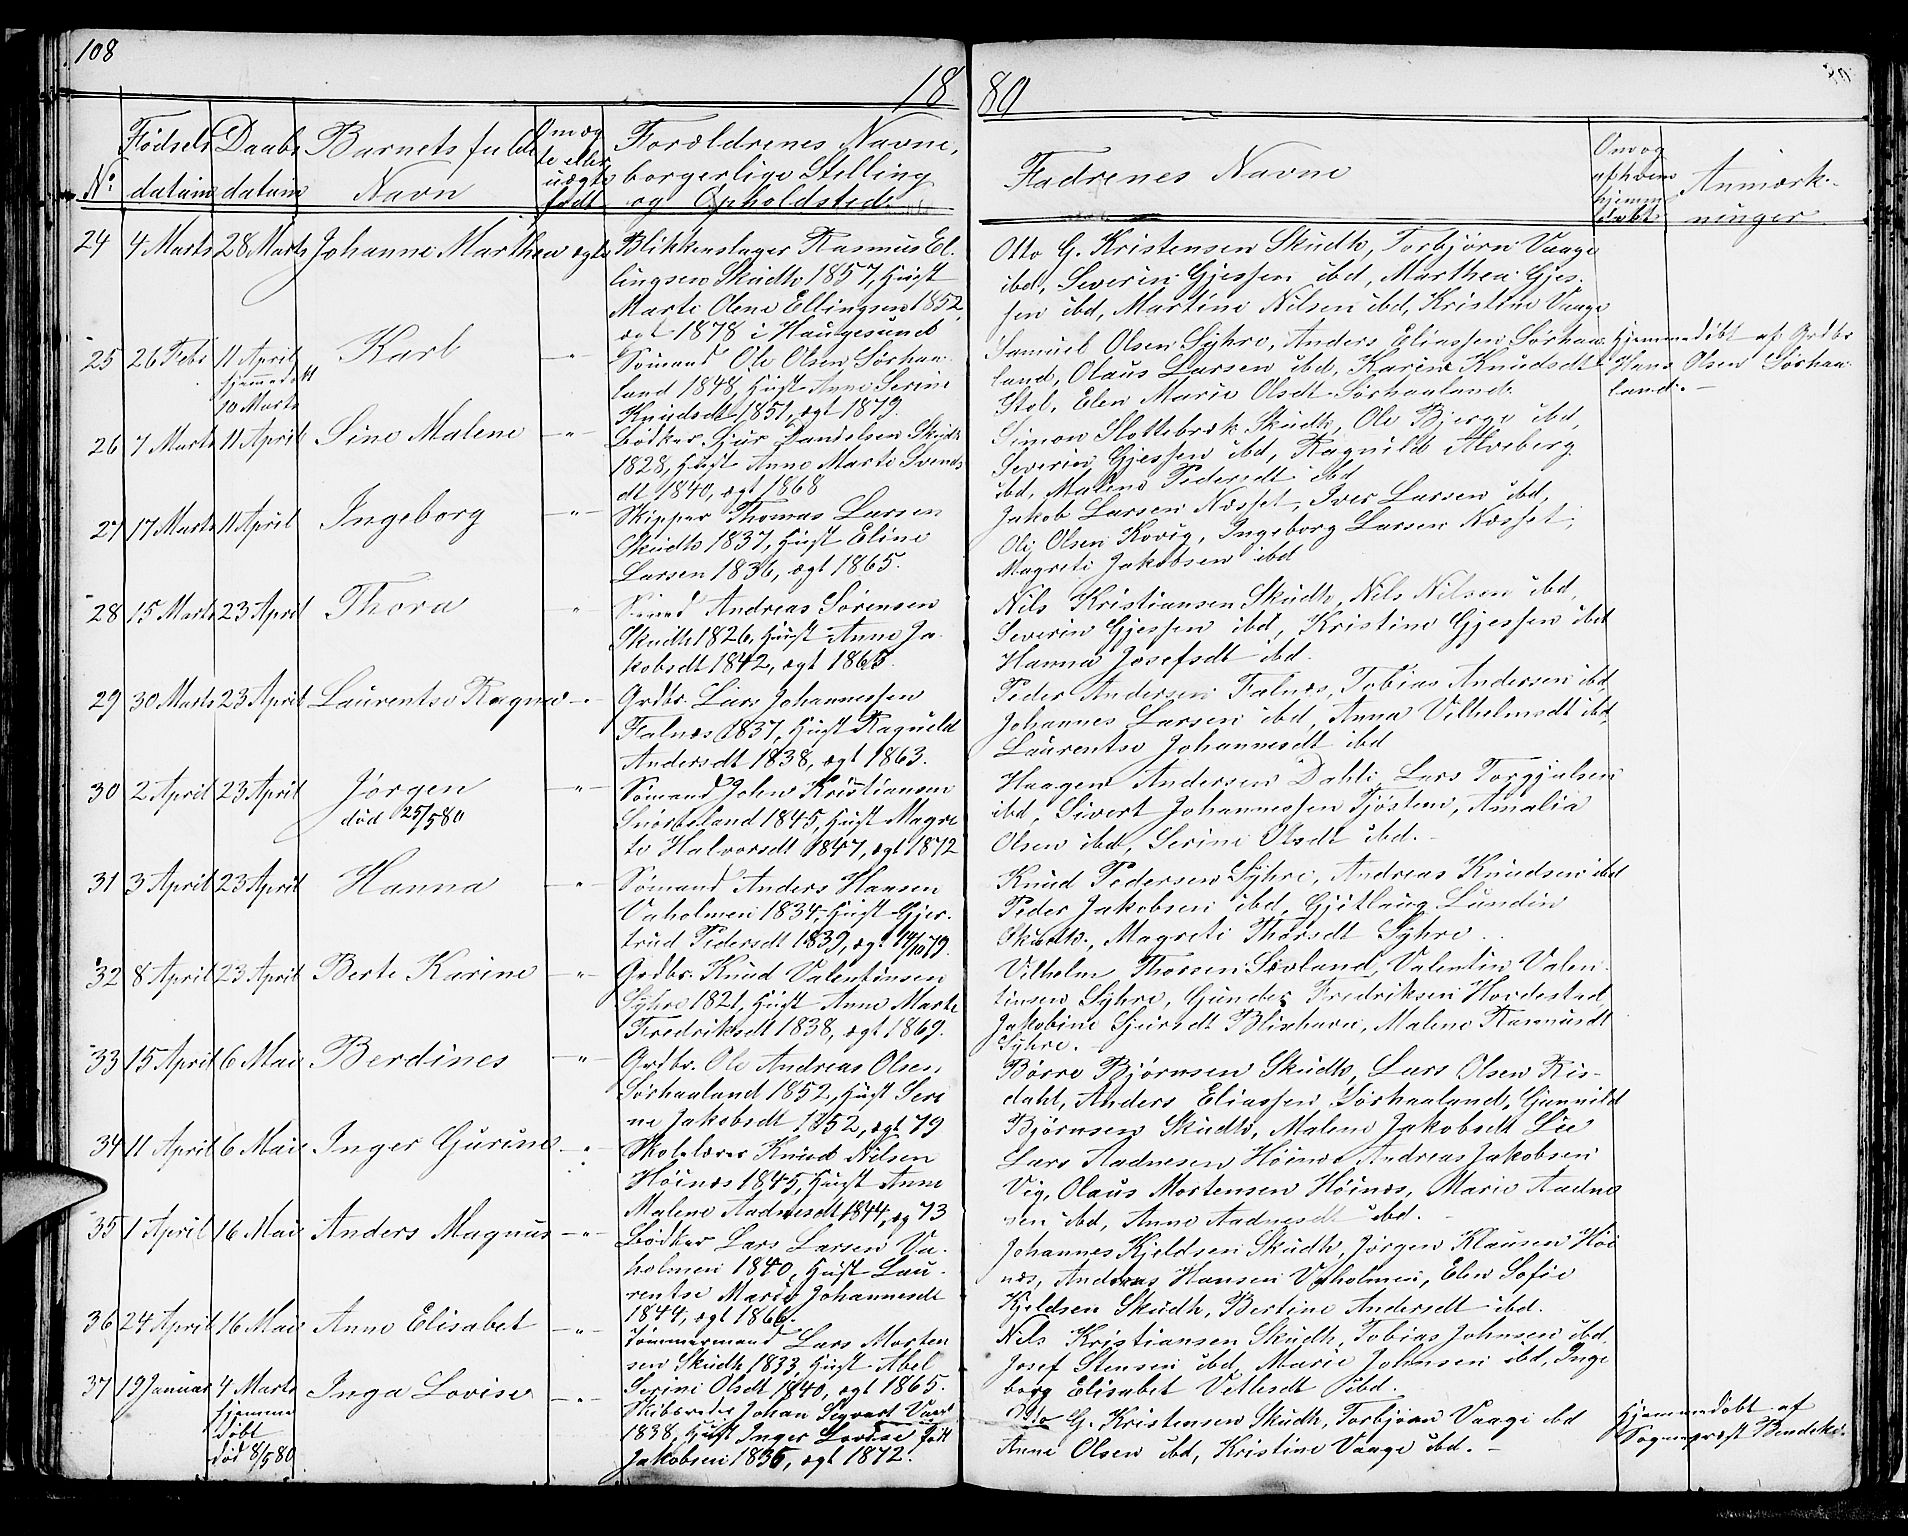 108
18 80
No. Fødsels datum Daabs datum Barnets fulde Navn Om ægte eller uægte født Forældrenes Navne, borgerlige Stilling og Opholdsted Fadrenes Navne Om og af hvem hjemmedøbt Anmærkninger
24 4 Marts 28 Marts Johanne Marthea ægte
Blikkenslager Rasmus El-
lingsen Skudh 1857, Hust
Marte Olene Ellingsen 1852,
ægt 1878 i Haugesund
Otto G. Kristensen Skudh, Torbjørn Vaage
ibd, Severin Gjessen ibd, Marthea Gjes-
sen ibd, Martine Nilsen ibd, Kristine Vaage
25 26 Feb 11 April Karl -"-
hjemmedøbt
10 Marts
Sømand Ole Olsen Sørhaa-
land 1848, Hust Anne Serine
Knudsdt 1851, ægt 1879.
Samuel Olsen Syhre, Anders Eliassen Sørhaa-
land, Olaus Larsen ibd, Karine Knudsdt
Stol, Elen Marie Olsdt Sørhaaland.
Hjemmedøbt af Grdbr
Hans Olsen Sørhaa-
land. -
26 7 Marts 11 April Sine Malene -"-
Bødker Sjur Danielsen Skudh
1828, Hust Anne Marte Svends-
dt 1840, ægt 1868
Simon Slottebræk Skudh, Ole Bjerge ibd,
Severin Gjessen ibd, Ragnild Alveberg
ibd, Malene Pedersdt ibd
27 17 Marts 11 April Ingeborg -"-
Skipper Thomas Larsen
Skudh 1837, Hust Eline
Larsen 1836, ægt 1865.
Jakob Larsen Næsset, Iver Larsen ibd,
Ole Olsen Kovig, Ingeborg Larsen Næsset,
Magrete Jakobsen ibd
28 15 Marts 23 April Thora "
Andreas Sørensen
Skudh 1826, Hust Anne Ja-
kobsdt 1842, ægt 1865.
Nils Kristiansen Skudh, Nils Nilsen ibd,
Severin Gjessen ibd, Kristine Gjessen ibd
Hanna Josefsdt ibd.
29 30 Marts 23 April Laurentse Ragna -"-
Grdbr. Lars Johannessen
Falnæs 1837, Hust Ragnild
Andersdt 1838, ægt 1863.
Peder Andersen Falnæs, Tobias Andersen ibd,
Johannes Larsen ibd, Anna Vilhelmsdt ibd,
Laurentse Johannesdt ibd
30 2 April 23 April Jørgen -"-
død 25/5 80
Sømand John Kristiansen
Snørteland 1845, Hust Magre-
te Halvorsdt 1847, ægt 1872
Haagen Andersen Dahle, Lars Torgjulsen
ibd, Sivert Johannessen Tjøstem, Amalia
Olsen ibd, Serine Olsdt ibd. -
31 3 April 23 April Hanna -"-
Sømand Anders Hansen
Vaholmen 1834, Hust Gjer-
trud Pedersdt 1839, ægt 14/10 79.
Knud Pedersen Syhre, Andreas Knudsen ibd
Peder Jakobsen ibd, Gjitlaug Lundin
Skudh., Magrete Thorsdt Syhre.
32 8 April 23 April Berte Karine -"-
Grdbr. Knud Valentinsen
Syhre 1821, Hust Anne Marte
Fredriksdt 1838, ægt 1869.
Vilhelm Thorsen Sævland, Valentin Valen-
tinsen Syhre, Gunder Fredriksen Hordestad,
Jakobine Sjursdt Blixhavn, Malene Rasmusdt
Syhre.
33 15 April 6 Mai Berdines -"-
Grdbr. Ole Andreas Olsen
Sørhaaland 1852, Hust Seri-
ne Jakobsdt 1852, ægt 79
Børre Bjørnsen Skudh, Lars Olsen Ris-
dahl, Anders Eliassen Sørhaaland, Gunnild
Bjørnsen Skudh, Malene Jakobsdt Lie
34 11 April 6 Mai Inger Gurine -"-
Skolelærer Knud Nilsen
Høinæs 1845, Hust Anne
Malene Aadnesdt 1844, æg 73
Lars Aadnesen Høinæs Andreas Jakobsen
Vig, Olaus Mortensen Høinæs, Marie Aadne-
sen ibd, Anne Aadnesdt ibd. -
35 1 April 16 Mai Anders Magnus -"-
Bødker Lars Larsen Va-
holmen 1840, Hust Lau-
rentse Marie Johannesdt
1844, ægt 1866.
Johannes Kjeldsen Skudh, Jørgen Klausen Høi-
næs, Andreas Hansen Vaholmen, Elen Sofie
Kjeldsen Skudh, Bertine Andersdt ibd.
36 24 April 16 Mai Anne Elisabet -"-
Tømmermand Lars Morten-
sen Skudh 1833, Hust Abel
Serine Olsdt 1840, ægt 1865.
Nils Kristiansen Skudh, Tobias Johnsen ibd,
Josef Stensen ibd, Marie Johnsen ibd, Inge-
borg Elisabet Vetlesdt ibd.
37 19 Januar 4 Marts Inga Lovise -"-
hjemme
døbt
død 8/5 80
Skibsreder Johan Sigvart Vaage
1838, Hust Inger Lovise født
Jakobsen 1836, ægt 1872.
Otto G. Kristensen Skudh, Torbjørn Vaage ibd
Anne Olsen ibd, Kristine Vaage ibd. -
Hjemmedøbt af
Sogneprest Bendeke.